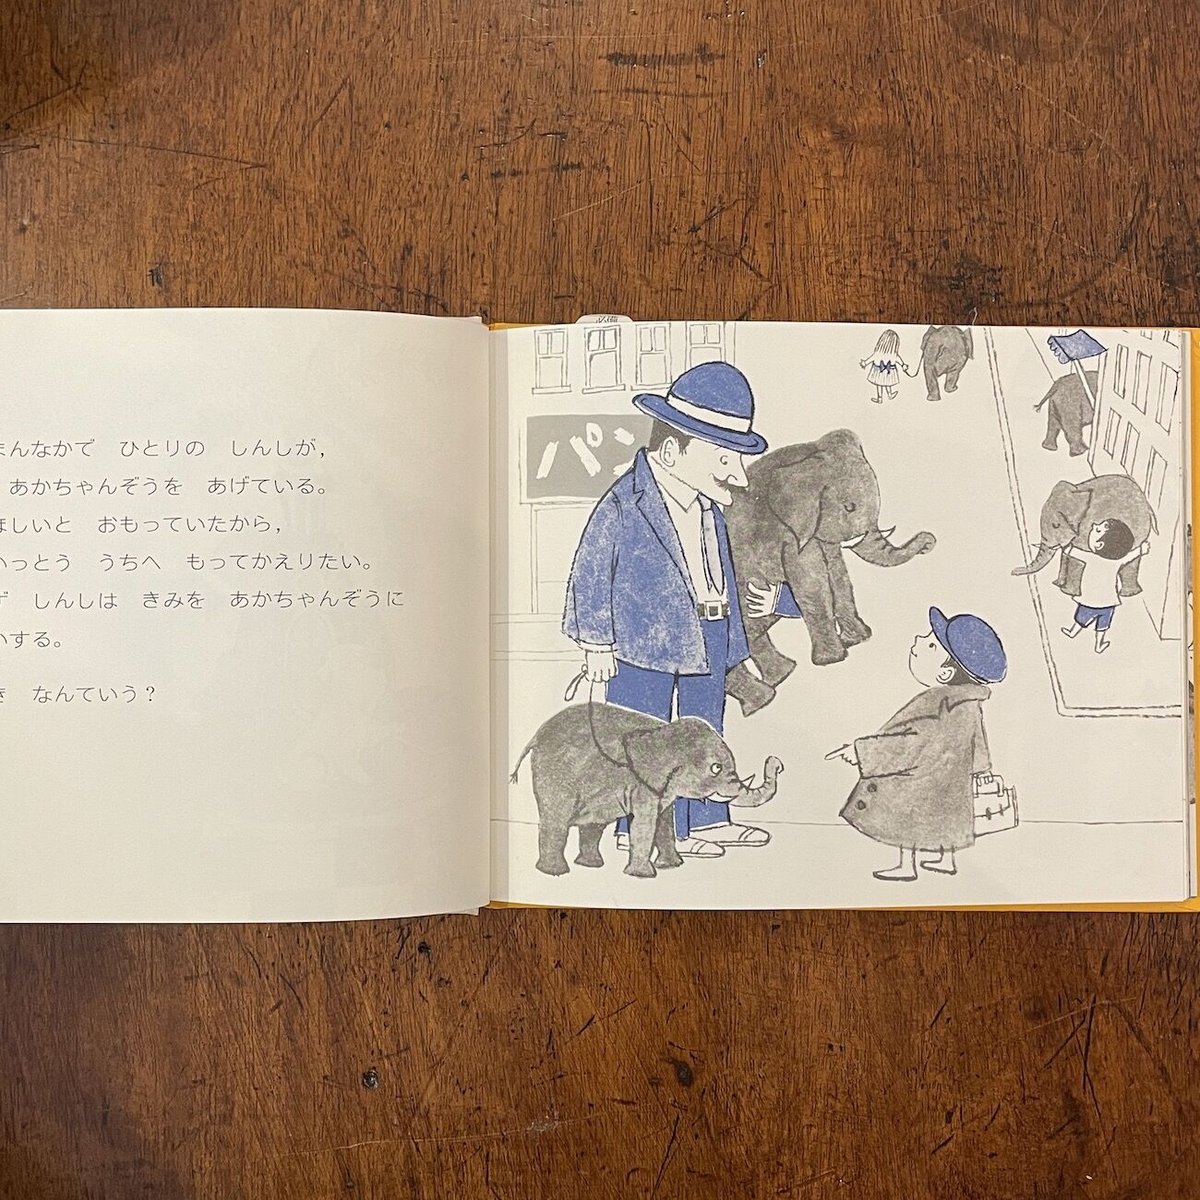 まんなかで　ひとりの　しんしが，
あかちゃんぞうを　あげている。
ほしいと　おもっていたから，
いっとう　うちへ　もってかえりたい。
しんしは　きみを　あかちゃんぞうに
する。
なんていう？
パン